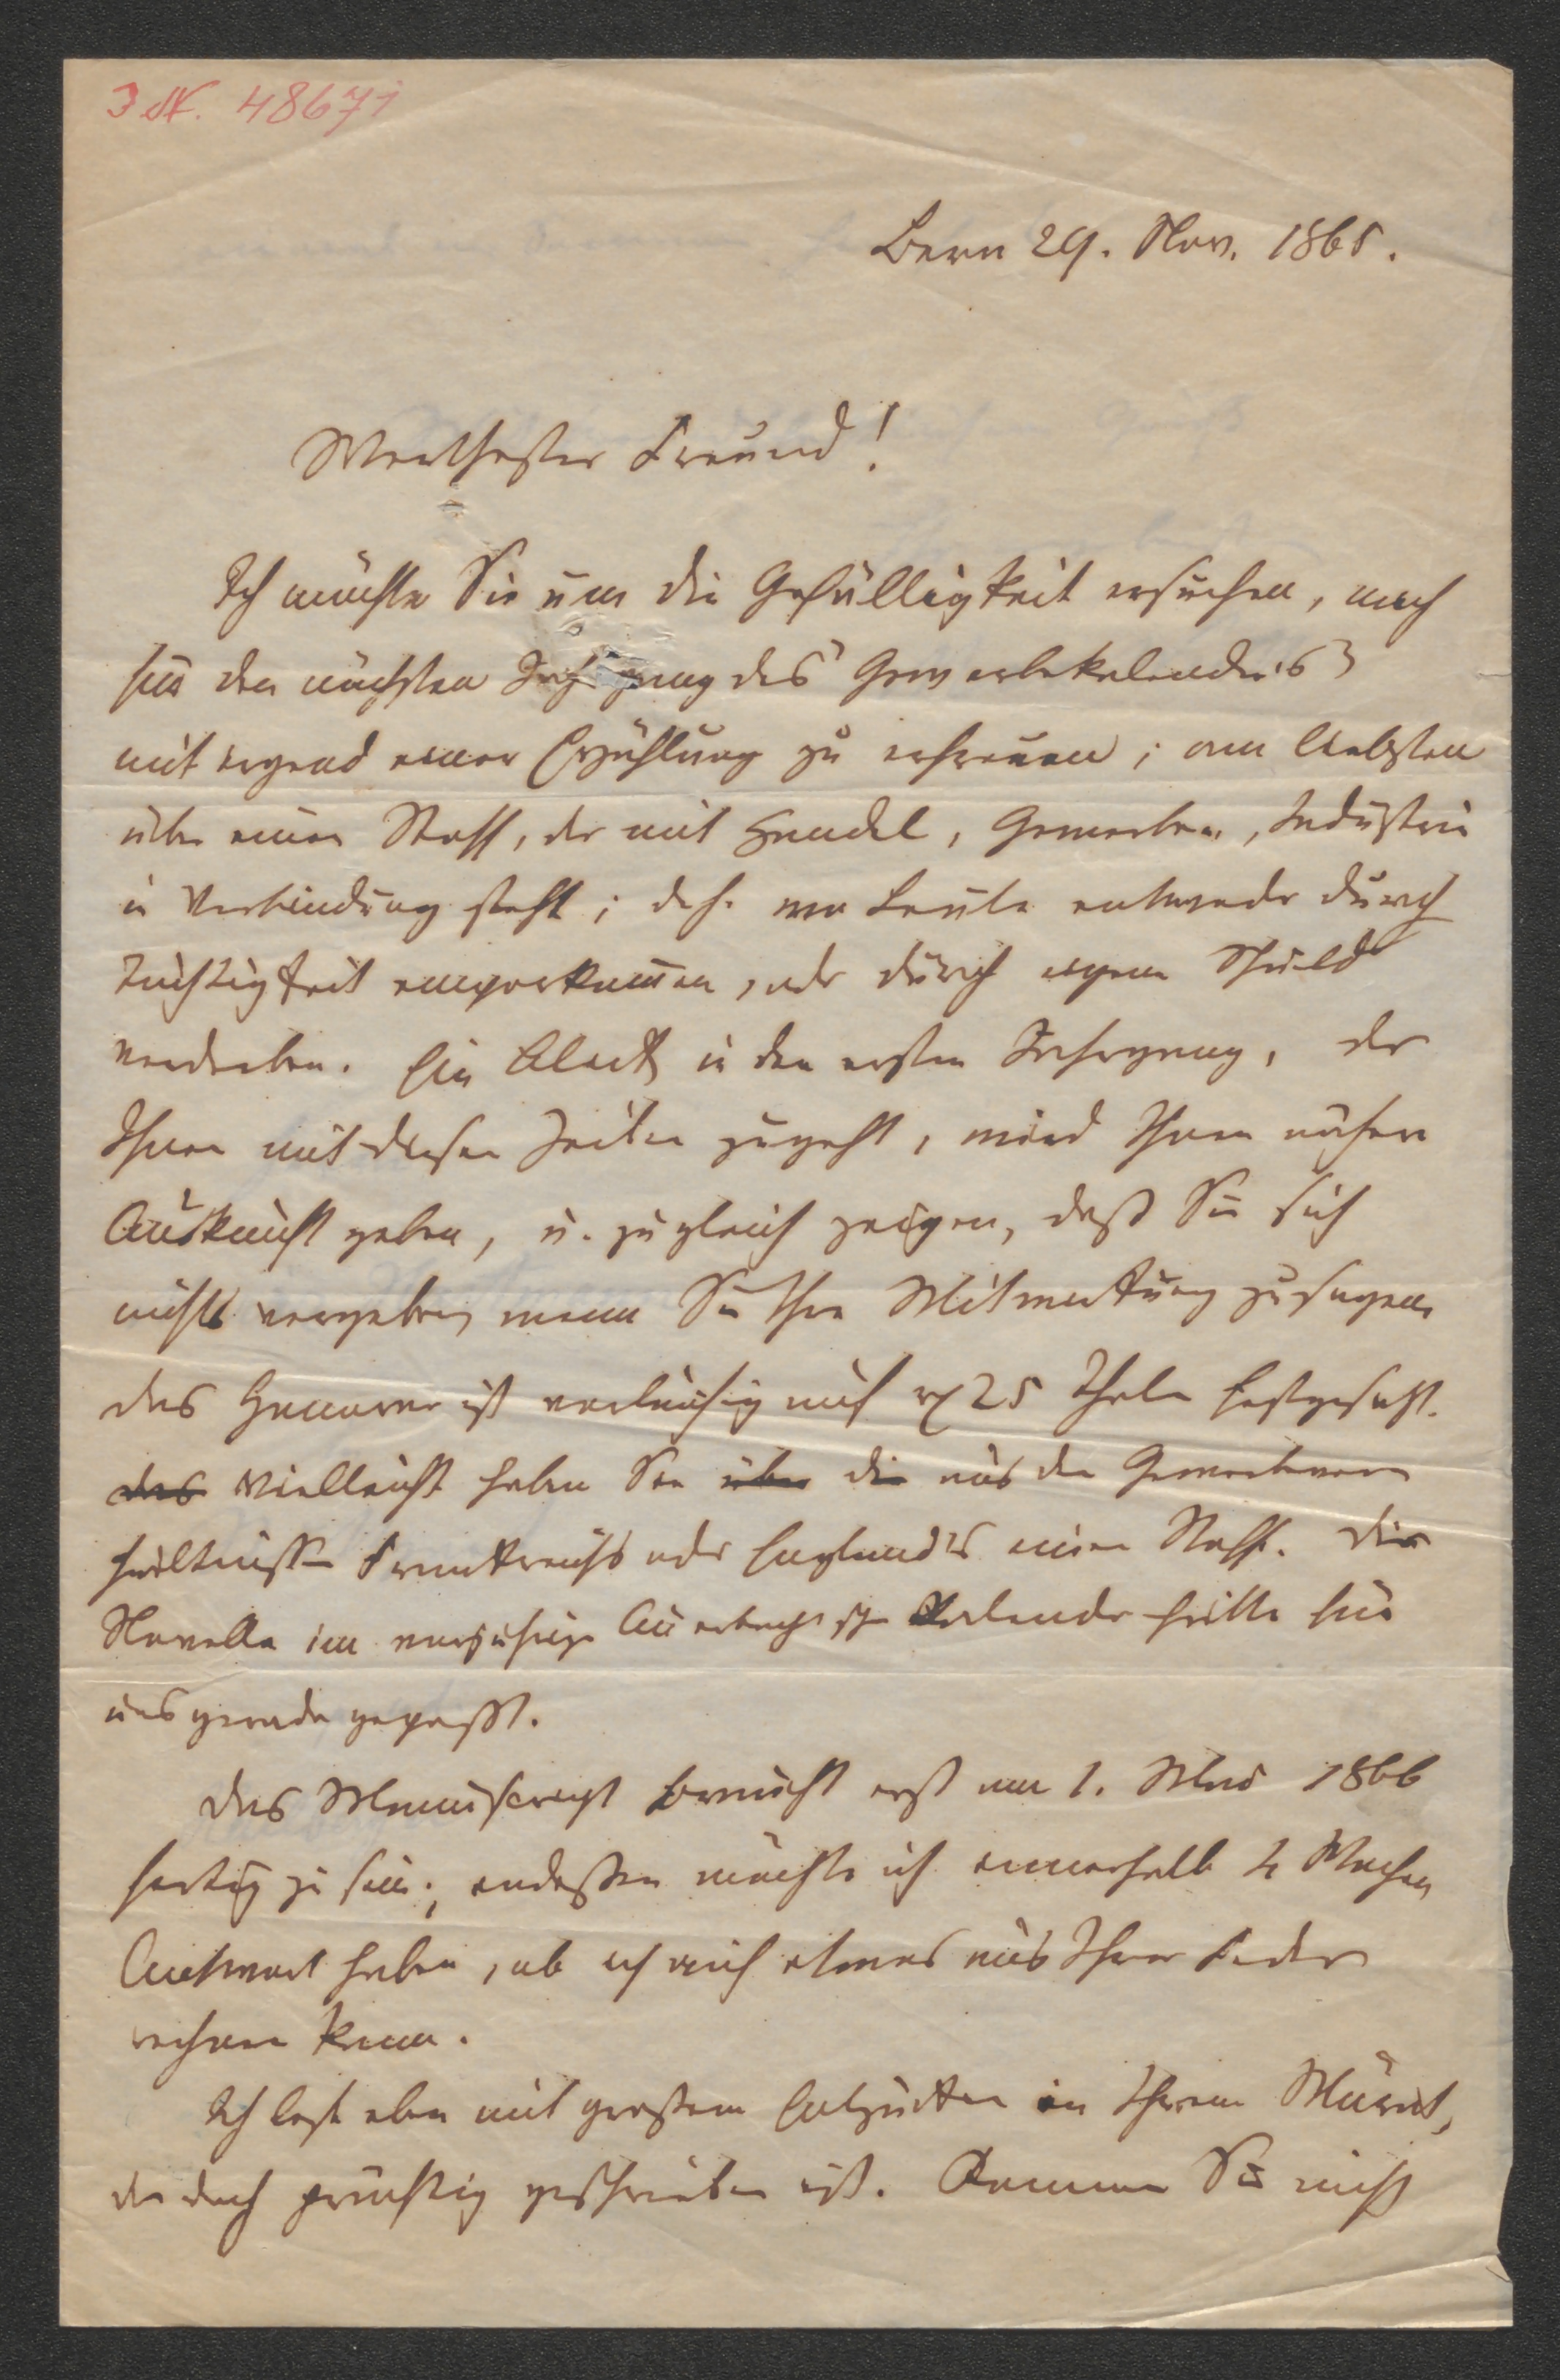 I. N. 48671
Bern 29. Nov. 1865.
Werthester Freund!
Ich möchte Sie um die Gefälligkeit ersuchen, mich
für den nächsten Jahrgang des Gewerbekalenders
mit irgend einer Erzählung zu erfreuen; am liebsten
über einen Stoff, der mit Handel, Gewerben, Industrie
in Verbindung steht; d. h. wo Leute entweder durch
Tüchtigkeit emporkommen, oder durch eigene Schuld
verderben. Ein Blick in den ersten Jahrgang, der
Ihnen mit diesen Zeilen zugeht, wird Ihnen nähere
Auskunft geben, u. zugleich zeigen, daß Sie sich
nichts vergeben, wenn Sie Ihre Mitwirkung zusagen.
Das Honorar ist vorläufig auf 25 Thaler festgesetzt.
das Vielleicht haben Sie über die aus den Gewerbever
hältnissen Frankreichs oder Englands einen Stoff. Die
Novelle im vorjährigen Auerbach'schen Kalender hätte für
uns gerade gepaßt.
Das Manuscript braucht erst am 1. Mai 1866
fertig zu sein; indessen möchte ich innerhalb 4 Wochen
Antwort haben, ob ich auf etwas aus Ihrer Feder
rechnen kann.
Ich lese eben mit großem Entzücken in Ihrem
der doch prächtig geschrieben ist. Kommen Sie nicht